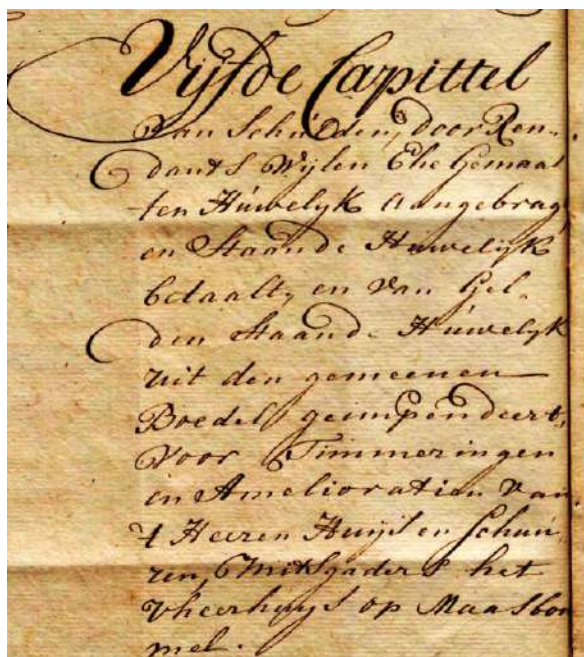 Vijfde Capittel
Van Schulden, door Ren-
dants Wijlen Ehe Gemaal
ten Húwelyk aangebrag
en Staande Húwelyk
betaalt, en van Gel-
den Staande Húwelyk
uit den gemeenen
Boedel geimpendeert,
voor Timmeringen
en Amelioratien van
't Heeren Huijs en Schuú-
ren, Mitsgaders het
Veerhuys op Maasbom
mel.